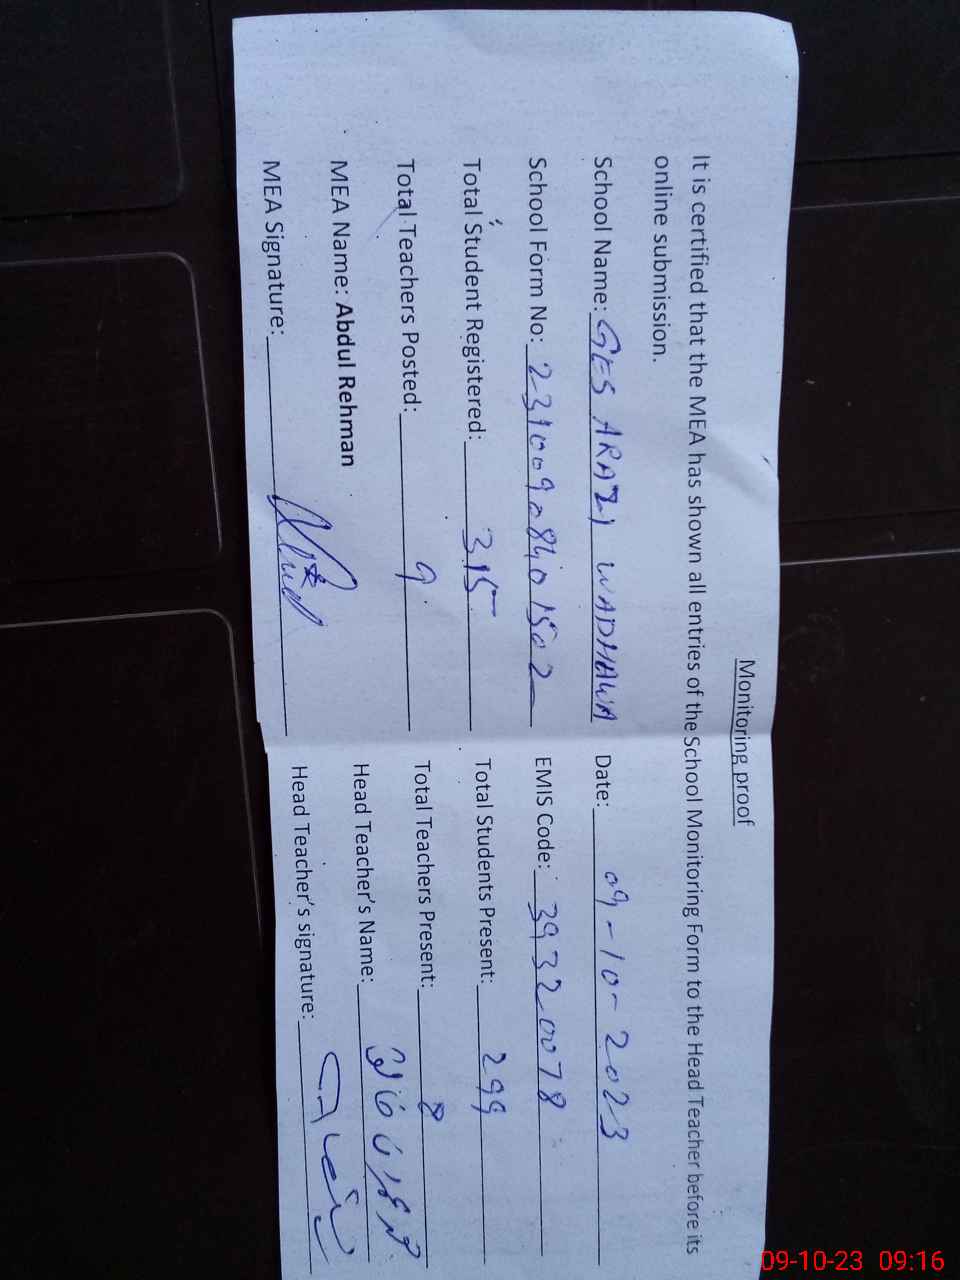 Monitoring proof
It is certified that the MEA has shown all entries of the School Monitoring Form to the Head Teacher before its
online submission.
School Name: GES ARAZI WADHAWA Date: 09-10-2023
School Form No: EMIS Code: 39320078
Total Student Registered: 315 Total Students Present: 299
Total Teachers Posted: 9 Total Teachers Present: 8
MEA Name: Abdul Rehman Head Teacher's Name:
MEA Signature: Head Teacher's signature:
09-10-23 09:16